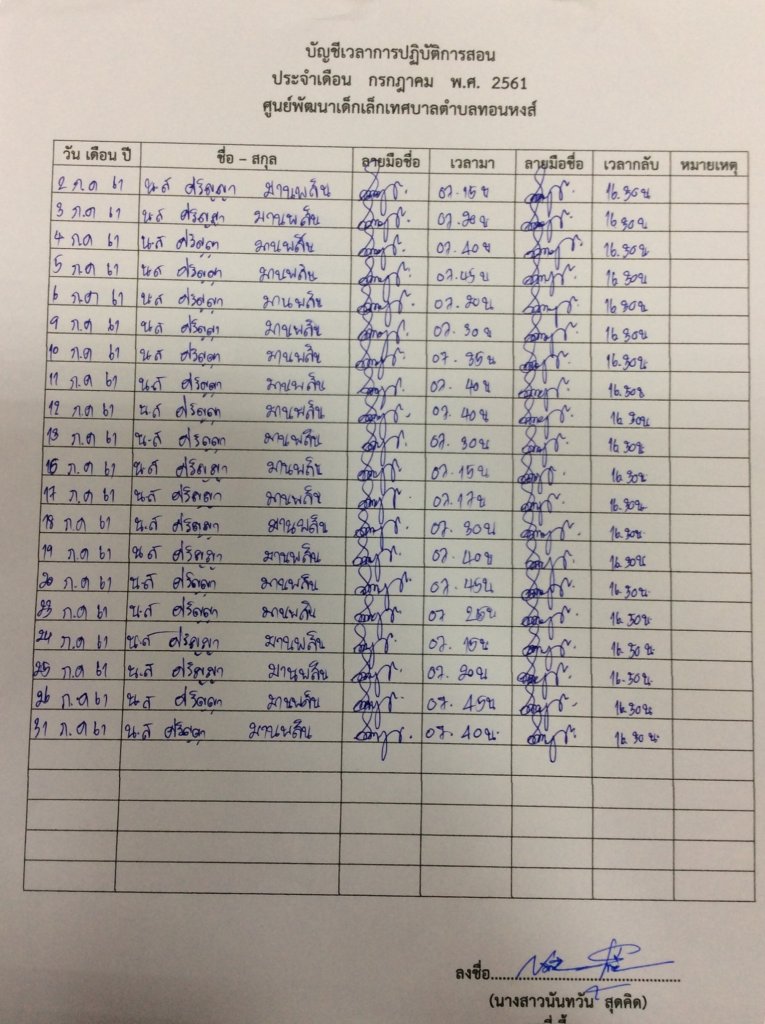 บัญชีเวลาการปฏิบัติการสอน
ประจำเดือน กรกฎาคม พ.ศ. 2561
ศูนย์พัฒนาเด็กเล็กเทศบาลตำบลทอนหงส์
วัน เดือน ปี ชื่อ - สกุล ลายมือชื่อ เวลามา ลายมือชื่อ เวลากลับ หมายเหตุ
2 ก.ค 61 น.ส ศรัญญา มานพสิน 07.15น 16.30น
3 ก.ค 61 น.ส ศรัญญา มานพสิน 07.20น 16.30น
4 ก.ค 61 น.ส ศรัญญา มานพสิน 07.40น 16.30น
5 ก.ค 61 น.ส ศรัญญา มานพสิน 07.45น 16.30น
6 ก.ค 61 น.ส ศรัญญา มานพสิน 07.20น 16.30น
9 ก.ค 61 น.ส ศรัญญา มานพสิน 07.30น 16.30น
10 ก.ค 61 น.ส ศรัญญา มานพสิน 07.35น 16.30น
11 ก.ค 61 น.ส ศรัญญา มานพสิน 07.40น 16.30น
12 ก.ค 61 น.ส ศรัญญา มานพสิน 07.40น 16.30น
13 ก.ค 61 น.ส ศรัญญา มานพสิน 07.30น 16.30น
16 ก.ค 61 น.ส ศรัญญา มานพสิน 07.15น 16.30น
17 ก.ค 61 น.ส ศรัญญา มานพสิน 07.17น 16.30น
18 ก.ค 61 น.ส ศรัญญา มานพสิน 07.30น 16.30น
19 ก.ค 61 น.ส ศรัญญา มานพสิน 07.40น 16.30น
20 ก.ค 61 น.ส ศรัญญา มานพสิน 07.45น 16.30น
23 ก.ค 61 น.ส ศรัญญา มานพสิน 07.25น 16.30น
24 ก.ค 61 น.ส ศรัญญา มานพสิน 07.15น 16.30น
25 ก.ค 61 น.ส ศรัญญา มานพสิน 07.20น 16.30น
26 ก.ค 61 น.ส ศรัญญา มานพสิน 07.45น 16.30น
31 ก.ค 61 น.ส ศรัญญา มานพสิน 07.40น 16.30น
ลงชื่อ
(นางสาวนันทวัน สุดคิด)